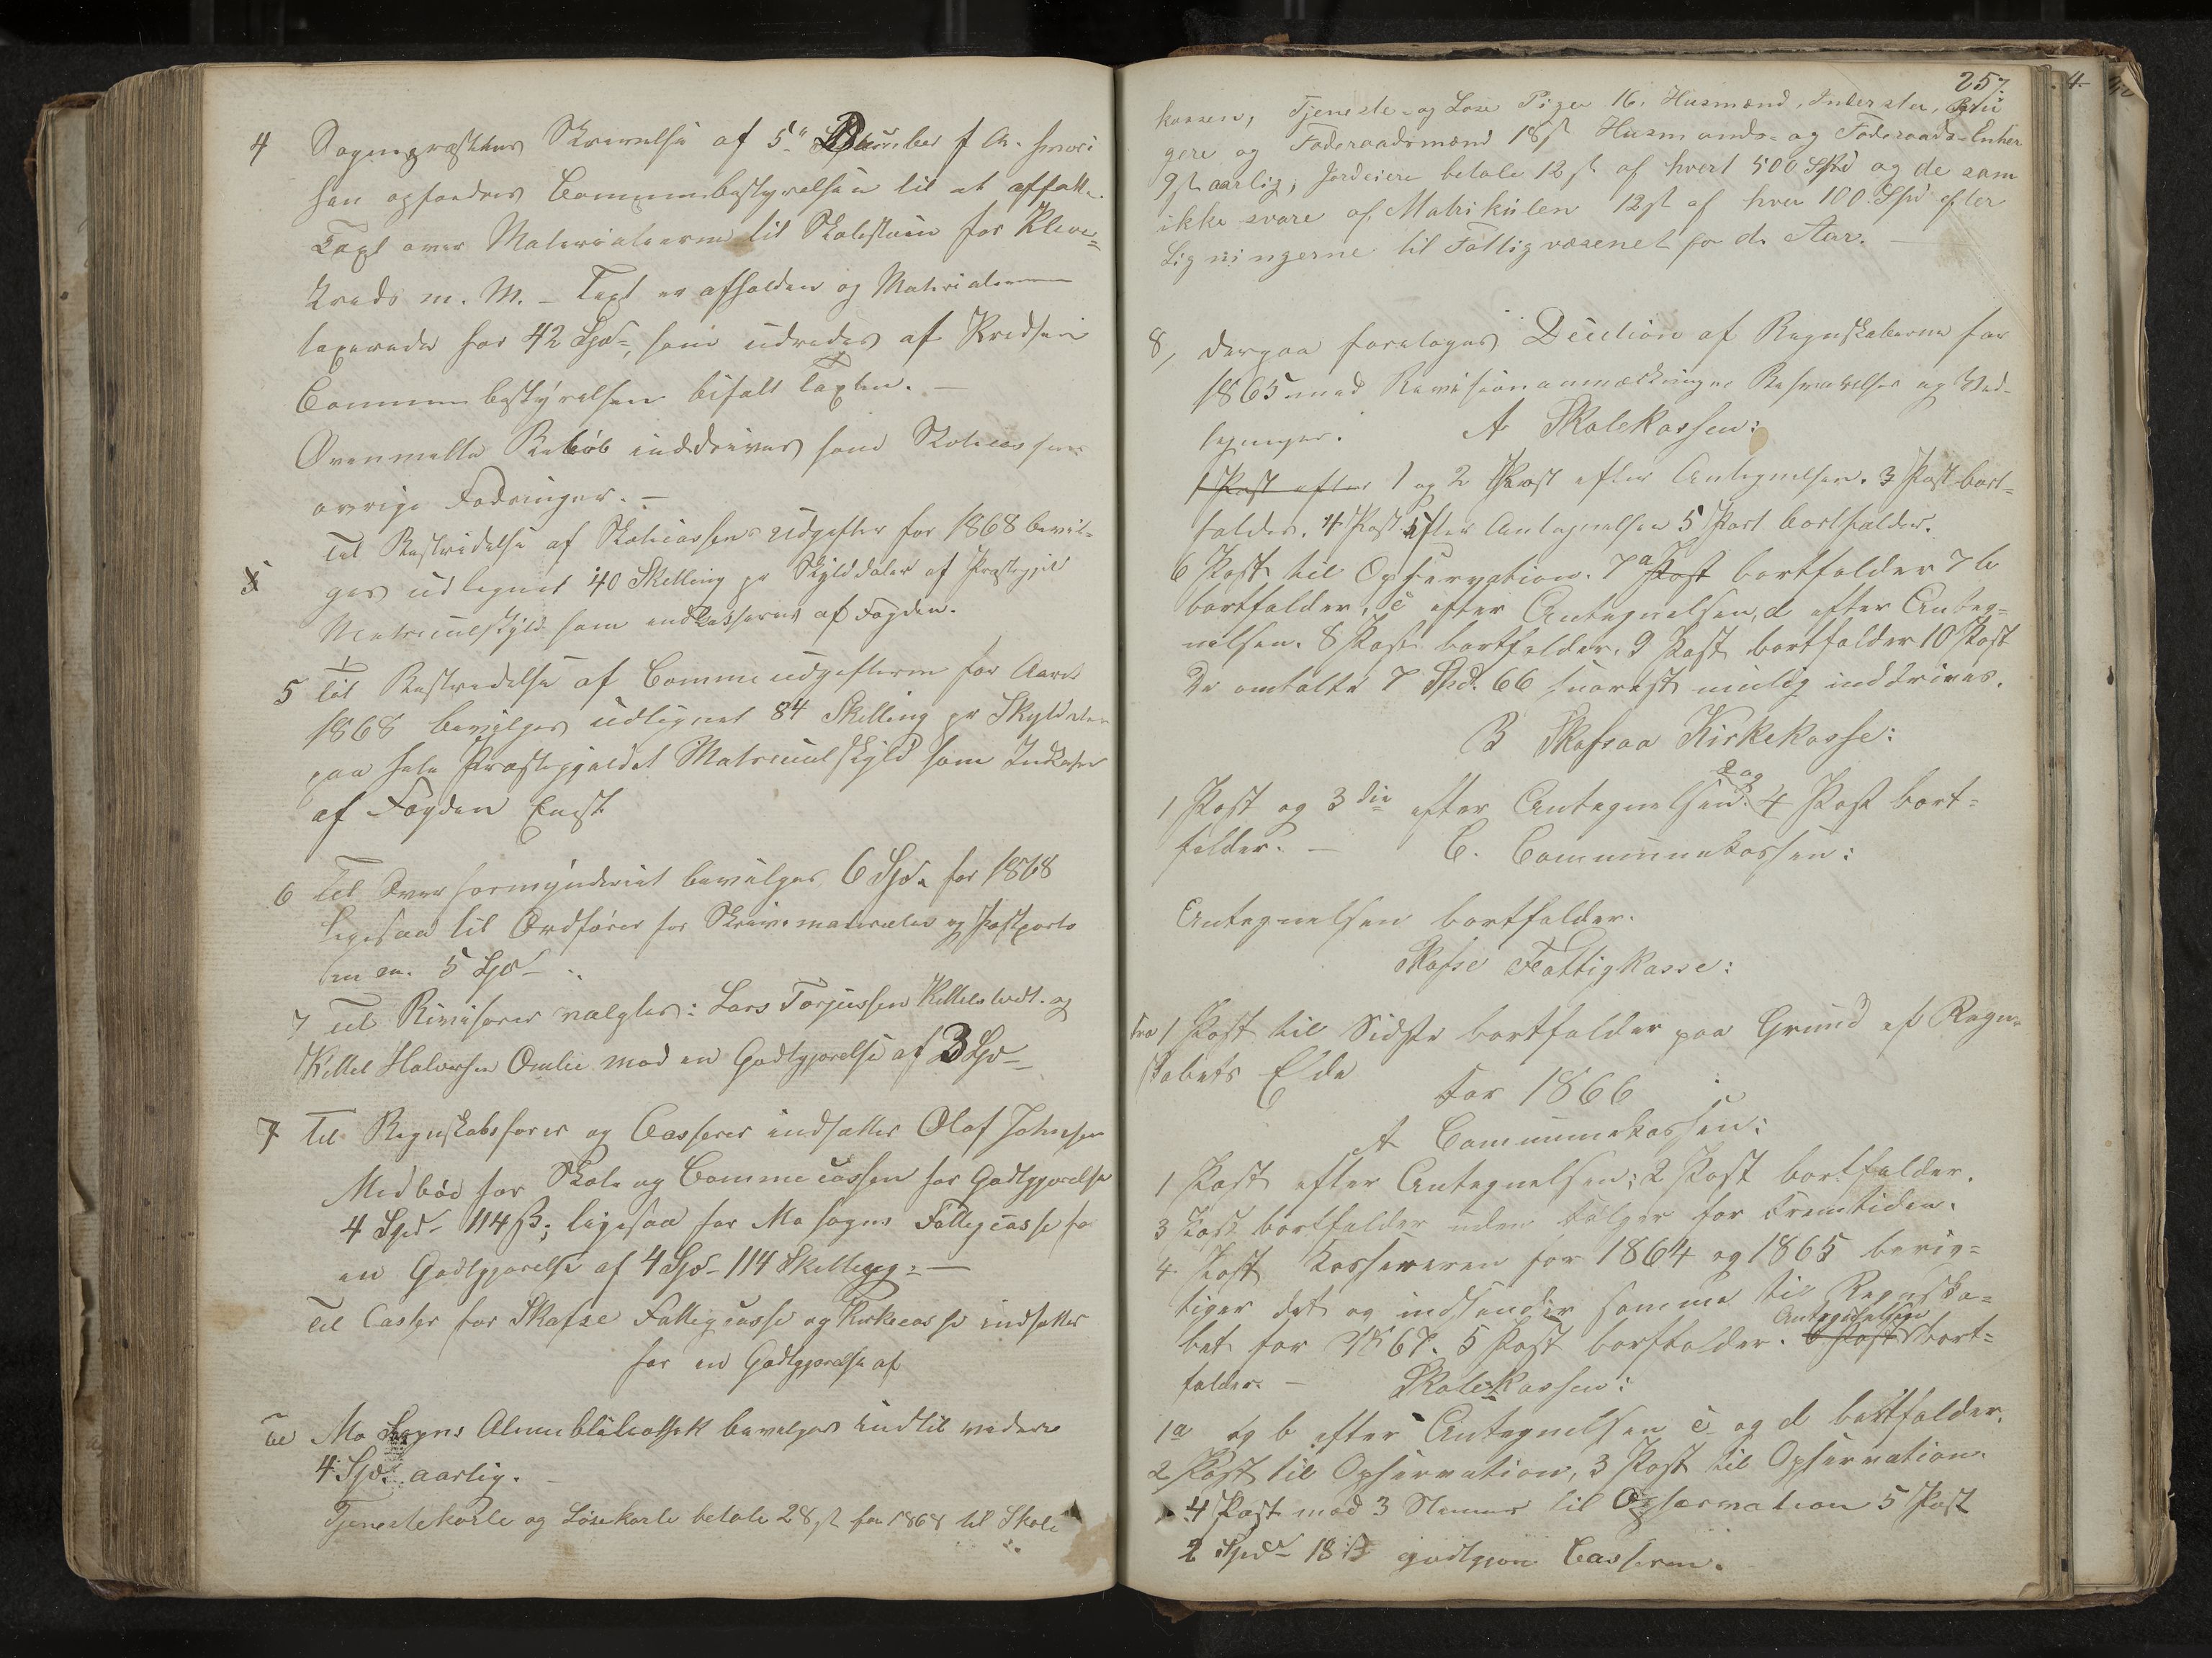 4 Sognepræstens Skrivelse af 5te December f. A. hvori
han opfordrer Communebestyrelsen til at affatte
Taxt over Materialierne til Skolestuen for Kleve-
Kreds m. M. – Taxt er afholden og Materialierne
taxerede for 42 Spd, som udredes af Kredsen
Communebestyrelsen bifalt Taxten. –
Ovenmelte Beløb inddrives som Skolecassens
øvrige Fodringer. –
Til Bestridelse af Skolecassens Udgifter for 1868 bevil-
ges udlignet 40 Skilling pr Skylddaler af Præstegjeld
Matriculskyld som indkasseres af Fogden.
5 Til Bestridelse af Communeudgifterne for Aaret
1868 bevilges udlignet 84 Skilling pr Skylddaler
paa hele Præstegjeldets Matriculskyld som Indkasseres
af Fogden
6 Til Overformynderiet bevilges 6 Spd. for 1868
ligesaa til Ordfører for Skrivematerialier og Postporto
m. m. 5 Spd –
7 Til Revisorer valgtes: Lars Torjussen Killelodt. og
Kittel Halvorsen Omlie mod en Godtgjørelse af 3 Spd –
7 Til Regnskabsfører og Casserer indsattes Olaf Johnsen
Midbøe for Skole og Communecassen for Godtgjørelse
4 Spd – 114 ß; ligesaa for Mo sogns Fattigcasse for
en Godtgjørelse af 4 Spd – 114 Skilling: –
Til Casserer for Skafse Fattigcasse og Kirkecasse indsattes
for en Godtgjørelse af
Til Mo Sogns Almuebibliothek bevilges indtil videre
4 Spd. aarlig. –
Tjenestekarle og Løsekarle betale 28 ß for 1868 til Skole
257.
kassen, Tjeneste- og Løse Piger 16. Husmænd, Inderster,
gere og Føderaadsmænd 18 ß Husmands- og Føderaads-Enker
9 ß aarlig, Jordeiere betale 12 ß af hvert 500 Spd og de som
ikke svare af Matrikulen 12 ß af hver 100 Spd efter
Ligningerne til Fattigvæsenet for d. Aar. –
8, Derpaa foretoges Decition af Regnskaberne for
1865 med Revisionanmærkninger Besvarelser og Ved-
tegninger. A Skolekassen:
1 Post efter 1 og 2 Post efter Antegnelsen. 3 Post bort-
falder. 4 Post efter Antegnelsen 5 Post bortfalder.
6 Post til Opservation. 7 a Post bortfalder 7 b
bortfalder, c efter Antegnelsen, d efter Anteg-
nelsen. 8 Post bortfalder. 9 Post bortfalder 10 Post
De omtalte 7 Spd. 66 snarest mulig inddrives.
B Skafsaa Kirkekasse:
1 Post og 3die efter Antegnelsen. 2 og 4 Post bort-
falder. – C. Communekassen:
Antegnelsen bortfalder.
Skafse Fattigkasse:
Fra 1 Post til Sidste bortfalder paa Grund af Regn-
skabets Elde For 1866
A Communekassen:
1 Post efter Antegnelsen; 2 Post bortfalder.
3 Post bortfalder uden Følger for Fremtiden.
4 Post Kassereren for 1864 og 1865 berig-
tiger det og indsender samme til Regnska-
bet for 1867. 5 Post bortfalder. 6 Post Antegnelsen bort-
falder. – Skolekassen:
1 a og b efter Antegnelsen c og d bortfalder.
2 Post til Opservation, 3 Post til Opservation.
4 Post med 3 Stemmer til Opservation 5 Post
2 Spd – 18 ß godtgjøres Casseren.